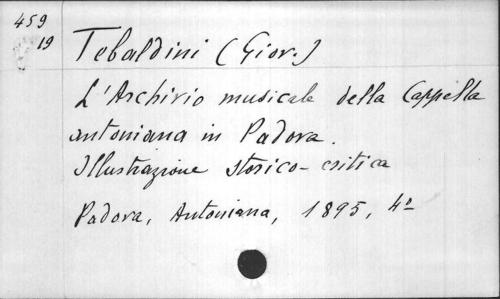 459
19
Tebaldini (Giov.)
L'Archivio musicale della Cappella
antoniana in Padova.
Illustrazione storico-critica
Padova, Antoniana, 1895, 4º